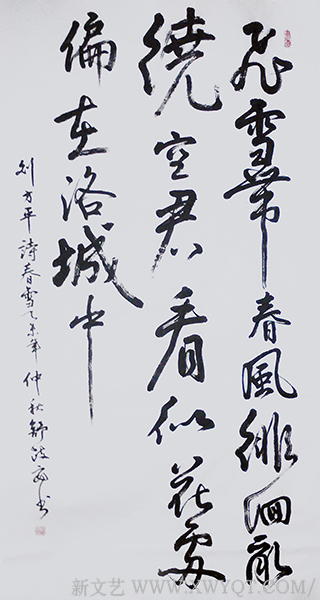 飛雪帶春風徘徊亂
繞空君看似花處
偏在洛城中
刘方平詩春雪乙未年仲秋舒波書
新文艺 WWW.XWYQT.COM/